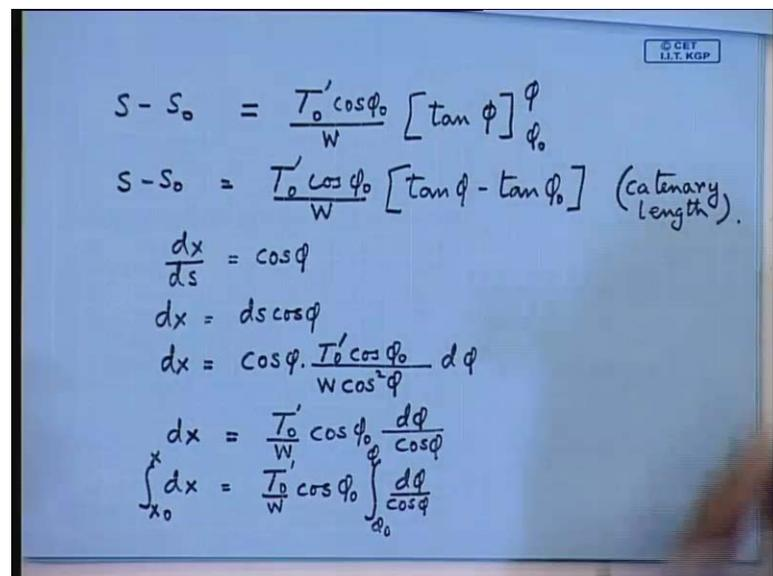 © CET
I.I.T. KGP
S - S₀ = T₀' cosφ₀ / W [tan φ]_φ₀^φ
S - S₀ = T₀' cos φ₀ / W [tanφ - tan φ₀] (catenary length).
dx/ds = cosφ
dx = ds cosφ
dx = cosφ. T₀' cos φ₀ / W cos²φ dφ
dx = T₀'/W cos φ₀ dφ/cosφ
∫_x₀^x dx = T₀'/W cos φ₀ ∫_φ₀^φ dφ/cosφ